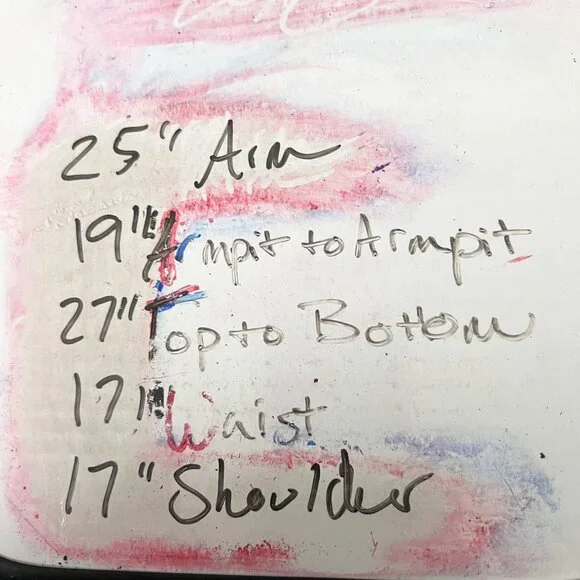 25" Arm
19" Armpit to Armpit
27" Top to Bottom
17" Waist
17" Shoulder